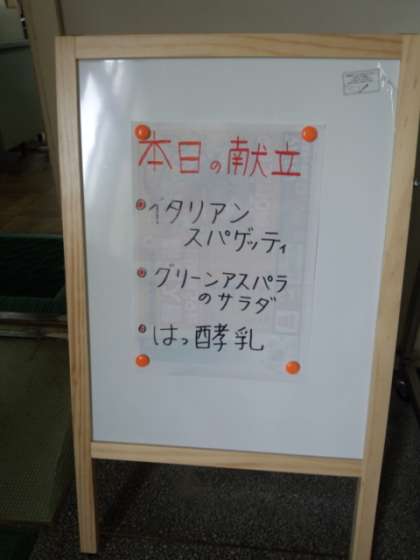 本日の献立
イタリアン
スパゲッティ
グリーンアスパラ
のサラダ
はっ酵乳